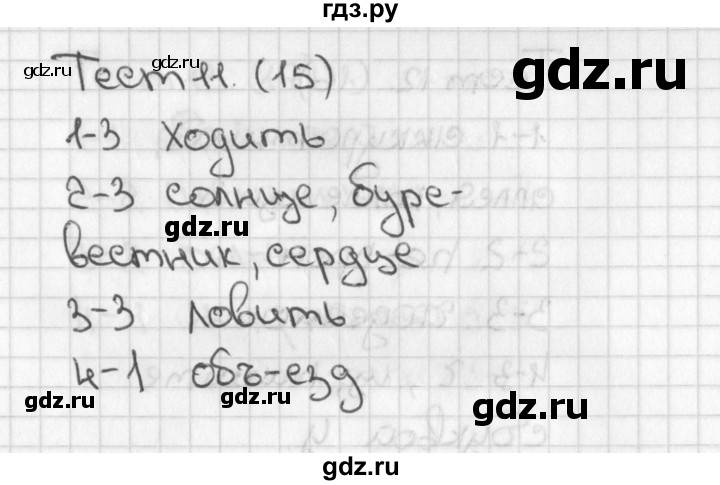 гдз.ру
Тест 11. (15)
gdz.ru
gdz.ru
1-3 ходить
2-3 солнце, буре-
gdz.ru
вестник, сердце
3-3 ловить
4-1 объ-езд
gdz.ru
gdz.ru
gdz.ru
gdz.ru